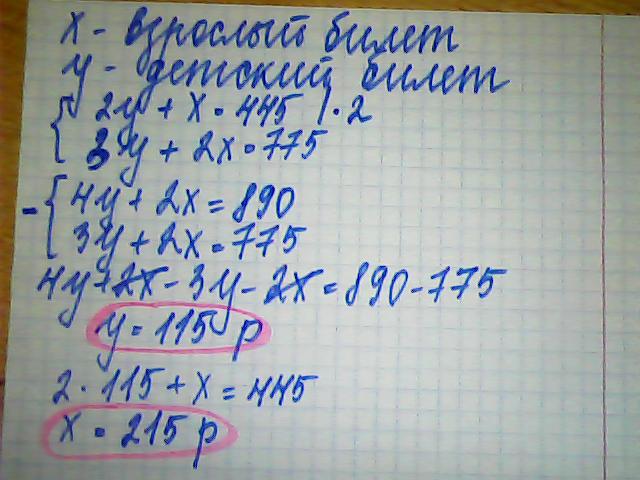 x - взрослый билет
y - детский билет
2y + x = 445 | · 2
3y + 2x = 775
- 4y + 2x = 890
3y + 2x = 775
4y + 2x - 3y - 2x = 890 - 775
y = 115 р
2 · 115 + x = 445
x = 215 р